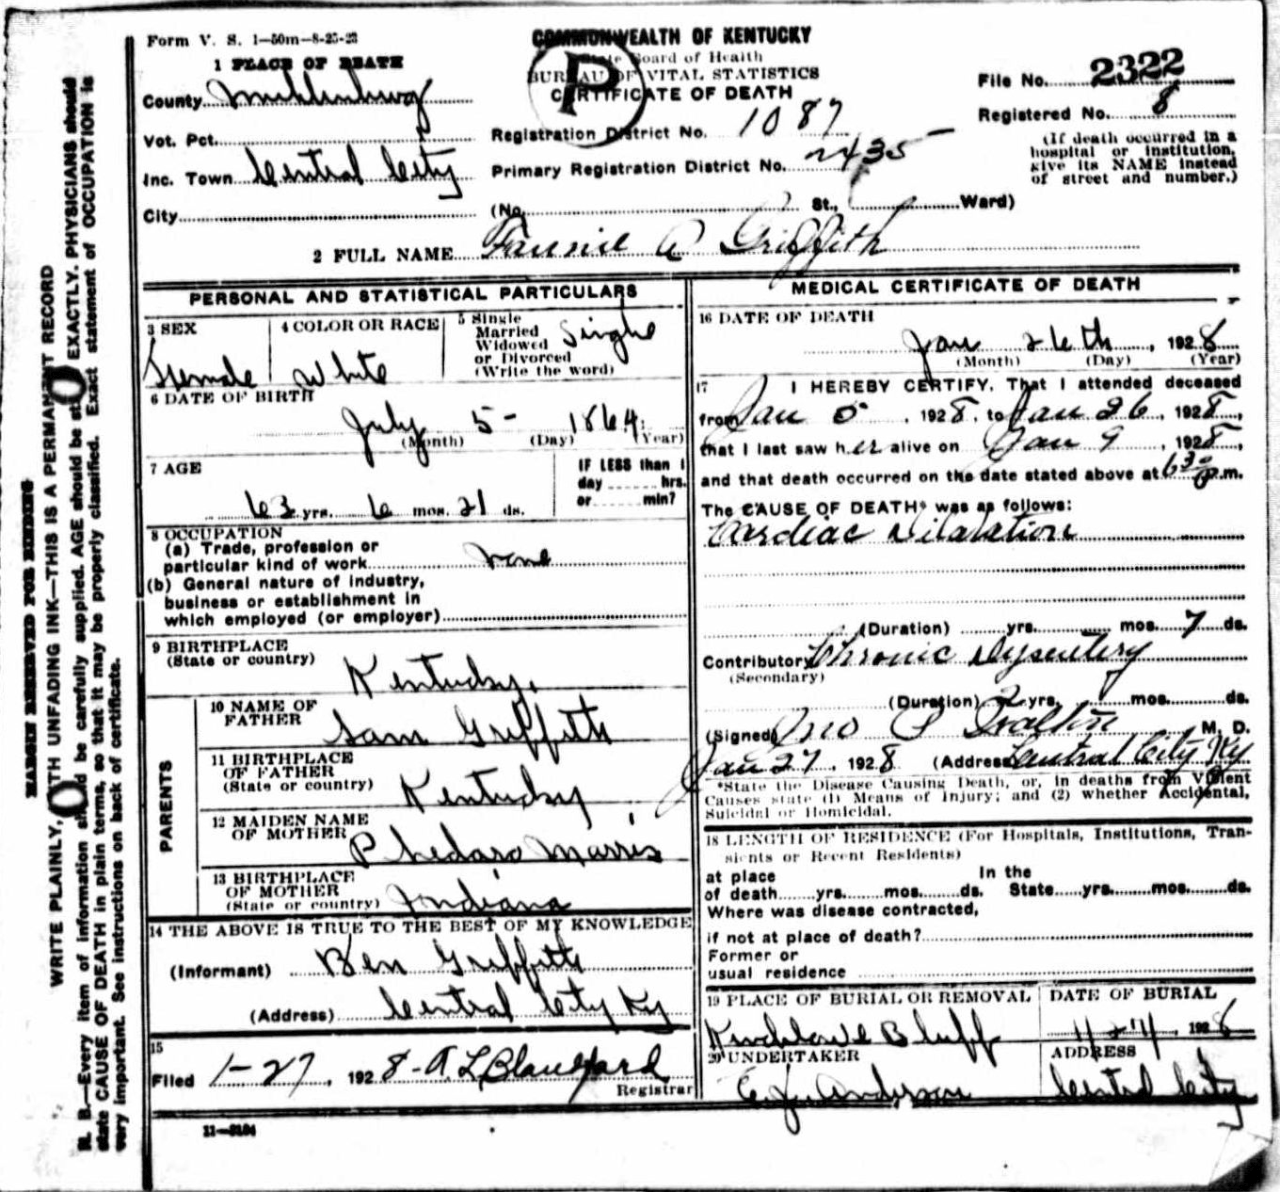 Form V. S. 1—50m—8-25-23
COMMONWEALTH OF KENTUCKY
State Board of Health
BUREAU OF VITAL STATISTICS
CERTIFICATE OF DEATH
P
File No. 2322
Registered No. 8
(If death occurred in a
hospital or institution,
give its NAME instead
of street and number.)
1 PLACE OF DEATH
County Muhlenburg
Vot. Pct.
Inc. Town Central City
City
Registration District No. 1087
Primary Registration District No. 2435
(No. St., Ward)
2 FULL NAME Fannie A Griffith
PERSONAL AND STATISTICAL PARTICULARS
3 SEX
Female
4 COLOR OR RACE
White
5 Single
Married
Widowed
or Divorced
(Write the word)
Single
6 DATE OF BIRTH
July 5- 1864
(Month) (Day) (Year)
7 AGE
63 yrs. 6 mos. 21 ds.
IF LESS than 1
day hrs.
or min?
8 OCCUPATION
(a) Trade, profession or
particular kind of work none
(b) General nature of industry,
business or establishment in
which employed (or employer)
9 BIRTHPLACE
(State or country)
Kentucky.
PARENTS
10 NAME OF
FATHER
Sam Griffith
11 BIRTHPLACE
OF FATHER
(State or country)
Kentucky
12 MAIDEN NAME
OF MOTHER
Morris
13 BIRTHPLACE
OF MOTHER
(State or country) Indiana
14 THE ABOVE IS TRUE TO THE BEST OF MY KNOWLEDGE
(Informant) Ben Griffith
(Address) Central City Ky
15
Filed 1-27, 1928- A. L. Blandford
Registrar
11—3184
MEDICAL CERTIFICATE OF DEATH
16 DATE OF DEATH
Jan 26th, 1928
(Month) (Day) (Year)
17 I HEREBY CERTIFY, That I attended deceased
from Jan 5, 1928, to Jan 26, 1928,
that I last saw her alive on Jan 9, 1928,
and that death occurred on the date stated above at 630 p.m.
The CAUSE OF DEATH* was as follows:
Cardiac Dilatation
(Duration) yrs. mos. 7 ds.
Contributory Chronic Dysentery
(Secondary)
(Duration) 2 yrs. mos. ds.
(Signed) Jno P Walton M. D.
Jan 27, 1928 (Address) Central City Ky
*State the Disease Causing Death, or, in deaths from Violent
Causes state (1) Means of Injury; and (2) whether Accidental,
Suicidal or Homicidal.
18 LENGTH OF RESIDENCE (For Hospitals, Institutions, Tran-
sients or Recent Residents)
at place In the
of death yrs. mos. ds. State yrs. mos. ds.
Where was disease contracted,
if not at place of death?
Former or
usual residence
19 PLACE OF BURIAL OR REMOVAL
Bluff
DATE OF BURIAL
1928
20 UNDERTAKER
Anderson
ADDRESS
Central City
MARGIN RESERVED FOR BINDING
WRITE PLAINLY, WITH UNFADING INK—THIS IS A PERMANENT RECORD
N. B.—Every item of information should be carefully supplied. AGE should be stated EXACTLY. PHYSICIANS should
state CAUSE OF DEATH in plain terms, so that it may be properly classified. Exact statement of OCCUPATION is
very important. See instructions on back of certificate.